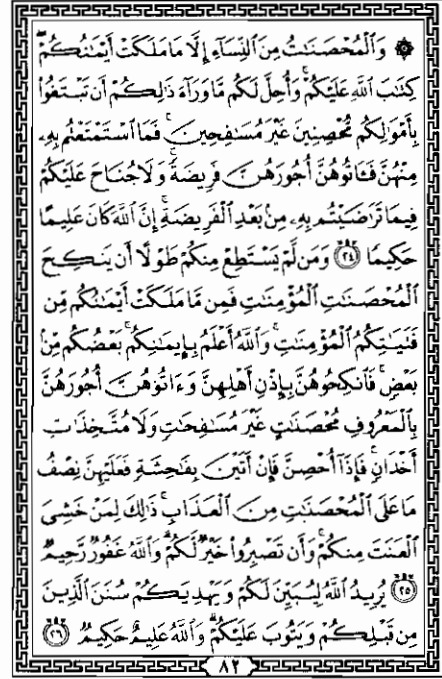 ۞ وَٱلۡمُحۡصَنَٰتُ مِنَ ٱلنِّسَآءِ إِلَّا مَا مَلَكَتۡ أَيۡمَٰنُكُمۡۖ
كِتَٰبَ ٱللَّهِ عَلَيۡكُمۡۚ وَأُحِلَّ لَكُم مَّا وَرَآءَ ذَٰلِكُمۡ أَن تَبۡتَغُواْ
بِأَمۡوَٰلِكُم مُّحۡصِنِينَ غَيۡرَ مُسَٰفِحِينَۚ فَمَا ٱسۡتَمۡتَعۡتُم بِهِۦ
مِنۡهُنَّ فَـَٔاتُوهُنَّ أُجُورَهُنَّ فَرِيضَةٗۚ وَلَا جُنَاحَ عَلَيۡكُمۡ
فِيمَا تَرَٰضَيۡتُم بِهِۦ مِنۢ بَعۡدِ ٱلۡفَرِيضَةِۚ إِنَّ ٱللَّهَ كَانَ عَلِيمًا
حَكِيمٗا ٢٤ وَمَن لَّمۡ يَسۡتَطِعۡ مِنكُمۡ طَوۡلًا أَن يَنكِحَ
ٱلۡمُحۡصَنَٰتِ ٱلۡمُؤۡمِنَٰتِ فَمِن مَّا مَلَكَتۡ أَيۡمَٰنُكُم مِّن
فَتَيَٰتِكُمُ ٱلۡمُؤۡمِنَٰتِۚ وَٱللَّهُ أَعۡلَمُ بِإِيمَٰنِكُمۚ بَعۡضُكُم مِّنۢ
بَعۡضٖۚ فَٱنكِحُوهُنَّ بِإِذۡنِ أَهۡلِهِنَّ وَءَاتُوهُنَّ أُجُورَهُنَّ
بِٱلۡمَعۡرُوفِ مُحۡصَنَٰتٍ غَيۡرَ مُسَٰفِحَٰتٖ وَلَا مُتَّخِذَٰتِ
أَخۡدَانٖۚ فَإِذَآ أُحۡصِنَّ فَإِنۡ أَتَيۡنَ بِفَٰحِشَةٖ فَعَلَيۡهِنَّ نِصۡفُ
مَا عَلَى ٱلۡمُحۡصَنَٰتِ مِنَ ٱلۡعَذَابِۚ ذَٰلِكَ لِمَنۡ خَشِيَ
ٱلۡعَنَتَ مِنكُمۡۚ وَأَن تَصۡبِرُواْ خَيۡرٞ لَّكُمۡۗ وَٱللَّهُ غَفُورٞ رَّحِيمٞ
٢٥ يُرِيدُ ٱللَّهُ لِيُبَيِّنَ لَكُمۡ وَيَهۡدِيَكُمۡ سُنَنَ ٱلَّذِينَ
مِن قَبۡلِكُمۡ وَيَتُوبَ عَلَيۡكُمۡۗ وَٱللَّهُ عَلِيمٌ حَكِيمٞ ٢٦
٨٢